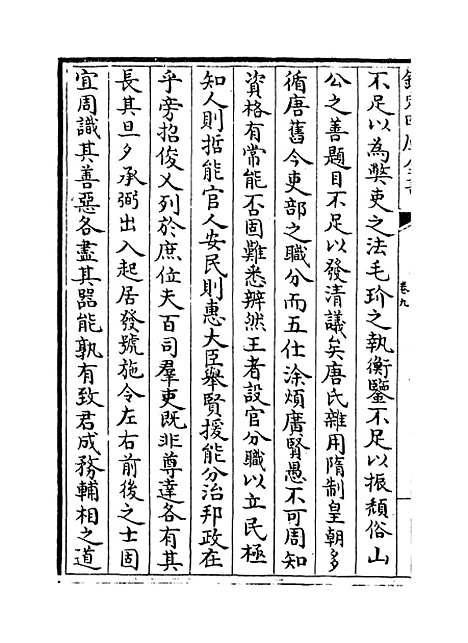 欽定四庫全書
卷九
不足以為弊吏之法毛玠之執衡鑒不足以振頽俗山
公之善題目不足以發清議矣唐氏雜用隋制皇朝多
循唐舊今吏部之職分而五仕涂煩廣賢愚不可周知
資格有常能否固難悉辨然王者設官分職以立民極
知人則哲能官人安民則惠大臣舉賢援能分治邦政在
乎旁招俊乂列於庶位夫百司羣吏既非尊達各有其
長其旦夕承弼出入起居發號施令左右前後之士固
宜周識其善惡各盡其器能孰有致君成務輔相之道